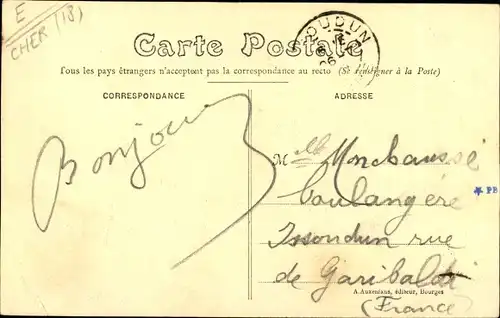 E
CHER (18)
OUDUN
06
Carte Postale
Tous les pays étrangers n'acceptent pas la correspondance au recto (Se renseigner à la Poste)
CORRESPONDANCE
ADRESSE
Bonjour
Melle Monchaussé
boulangère
PE
Issoudun rue
de Garibaldi
A. Auxenfans, éditeur, Bourges
(France)